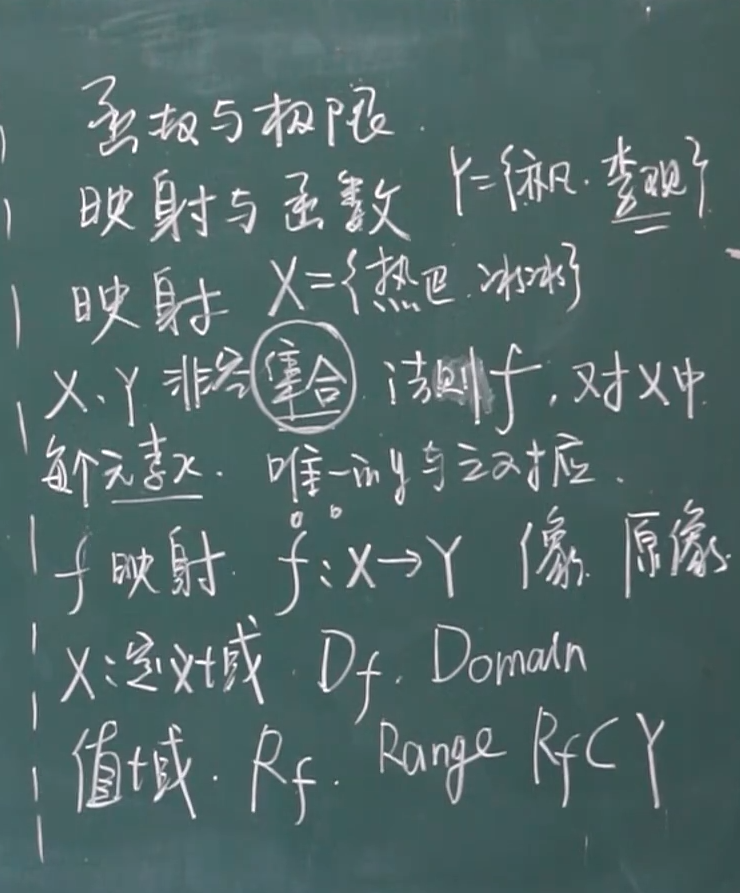 函数与极限.
映射与函数 Y={亦凡.李现}
映射 X={热巴.冰冰}
X、Y 非空集合 法则f,对X中
每个元素x. 唯一的y与之对应.
f 映射. f:X→Y 像. 原像.
X:定义域. Df. Domain
值域. Rf. Range Rf⊂Y